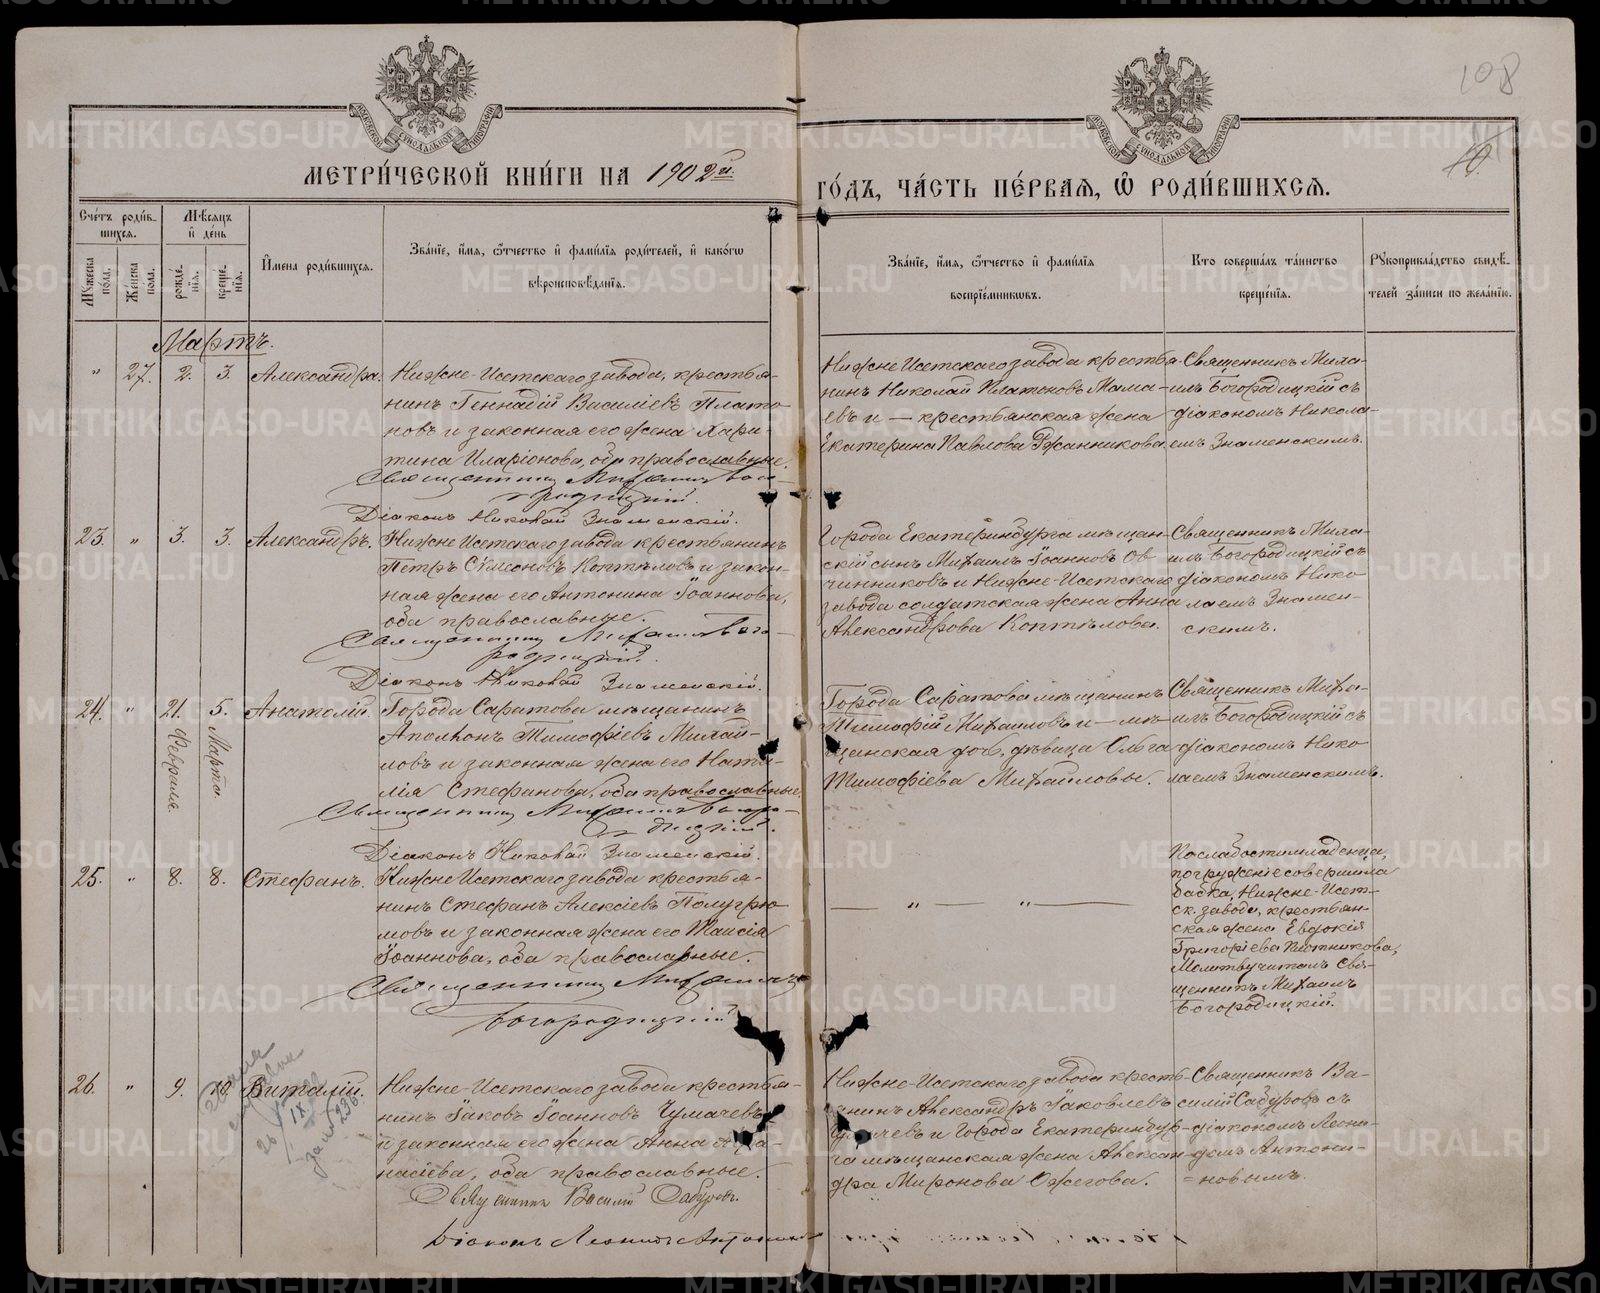 108
10.
МОСКОВСКОЙ СѴНОДАЛЬНОЙ ТИПОГРАФІИ
МОСКОВСКОЙ СѴНОДАЛЬНОЙ ТИПОГРАФІИ
МЕТРИ́ЧЕСКОЙ КНИ́ГИ НА 1902й.
ГО́ДЪ, ЧА́СТЬ ПЕ́РВАЯ, Ѿ РОДИ́ВШИХСЯ.
Сче́тъ роди́в-
шихся.
Мꙋжеска по́ла.
Женска пола.
Мѣсяцъ
и де́нь
рожде́-
нія.
креще́-
нія.
И́мена роди́вшихся.
Зва́ніе, и́мя, ѻ́тчество и фами́лія роди́телей, и како́гѡ
вѣроисповѣ́данія.
Зва́ніе, и́мя, ѻ́тчество и фами́лія
воспріе́мниковъ.
Кто соверша́лъ та́инство
креще́нія.
Рꙋкоприкла́дство свидѣ́-
телей за́писи по жела́нію.
Мартъ.
" 27. 2. 3. Александра.
Нижне-Исетскаго завода, крестья-
нинъ Геннадій Василіевъ Плато-
новъ и законная его жена Хари-
тина Иларіонова, оба православные.
Священникъ Михаилъ Бого-
родицкій.
Діаконъ Николай Знаменскій.
Нижне Исетскаго завода крестья-
нинъ Николай Мама-
евъ и — крестьянская жена
Екатерина Павлова
Священникъ Миха-
илъ Богородицкій съ
діакономъ Никола-
емъ Знаменскимъ.
23. " 3. 3. Александръ.
Нижне Исетскаго завода крестьянинъ
Петръ Сѵмеоновъ Коптѣловъ и закон-
ная жена его Антонина Іоаннова,
оба православные.
Священникъ Михаилъ Бого-
родицкій.
Діаконъ Николай Знаменскій.
Города Екатеринбурга мѣщан-
скій сынъ Михаилъ Іоанновъ Ов-
чинниковъ и Нижне-Исетскаго
завода солдатская жена Анна
Александрова Коптѣлова.
Священникъ Миха-
илъ Богородицкій съ
діакономъ Нико-
лаемъ Знамен-
скимъ.
24. " 21. Февраля. 5. Марта. Анатолій.
Города Саратова мѣщанинъ
Аполлонъ Тимофіевъ Михай-
ловъ и законная жена его Ната-
лія Стефанова, оба православные.
Священникъ Михаилъ Богоро-
дицкій.
Діаконъ Николай Знаменскій.
Города Саратова мѣщанинъ
Тимофій Михаиловъ и — мѣ-
щанская дочь, дѣвица Ольга
Тимофіева Михайловы.
Священникъ Миха-
илъ Богородицкій съ
діакономъ Нико-
лаемъ Знаменскимъ.
25. " 8. 8. Стефанъ.
Нижне Исетскаго завода крестья-
нинъ Стефанъ Алексіевъ Полугрю-
мовъ и законная жена его Таисія
Іоаннова, оба православные.
Священникъ Михаилъ
Богородицкій
— " — " —
По слабости младенца,
погруженіе совершила
бабка, Нижне-Исет-
ск. завода, крестьян-
ская жена Евдокія
Григоріева Плотникова,
Молитву читалъ Свя-
щенникъ Михаилъ
Богородицкій.
26. " 9. 10. Виталій.
Нижне-Исетскаго завода крестья-
нинъ Іаковъ Іоанновъ Чумачевъ
и законная его жена Анна Аѳа-
насіева, оба православные.
Священникъ Василій Сабуровъ.
Діаконъ Леонидъ Антониновъ
Нижне-Исетскаго завода кресть-
янинъ Александръ Іаковлевъ
Чумачевъ и Города Екатеринбур-
га мѣщанская жена Алексан-
дра Миронова Ожегова.
Священникъ Ва-
силій Сабуровъ съ
діакономъ Леони-
домъ Антони-
=новымъ.